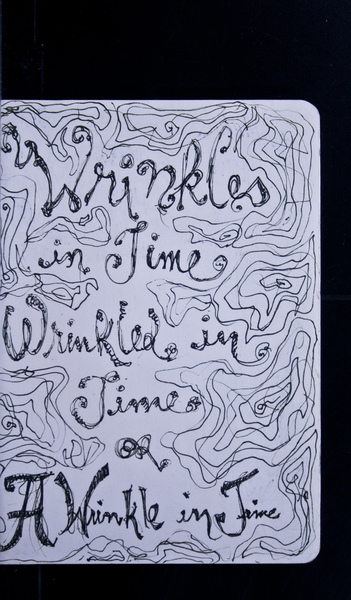 Wrinkles
in Time
Wrinkled in
Time
or
A Wrinkle in Time